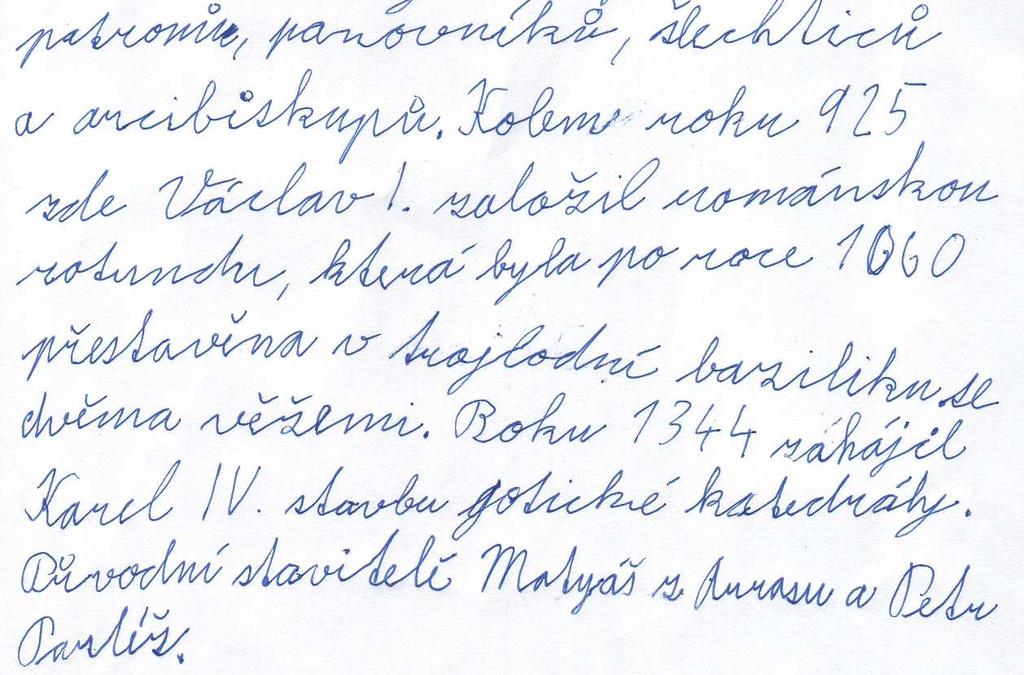 patronů, panovníků, šlechticů
a arcibiskupů. Kolem roku 925
zde Václav I. založil románskou
rotundu, která byla po roce 1060
přestavěna v trojlodní baziliku se
dvěma věžemi. Roku 1344 záhájil
Karel IV. stavbu gotické katedrály.
Původní stavitelé Matyáš z Arrasu a Petr
Parléř.